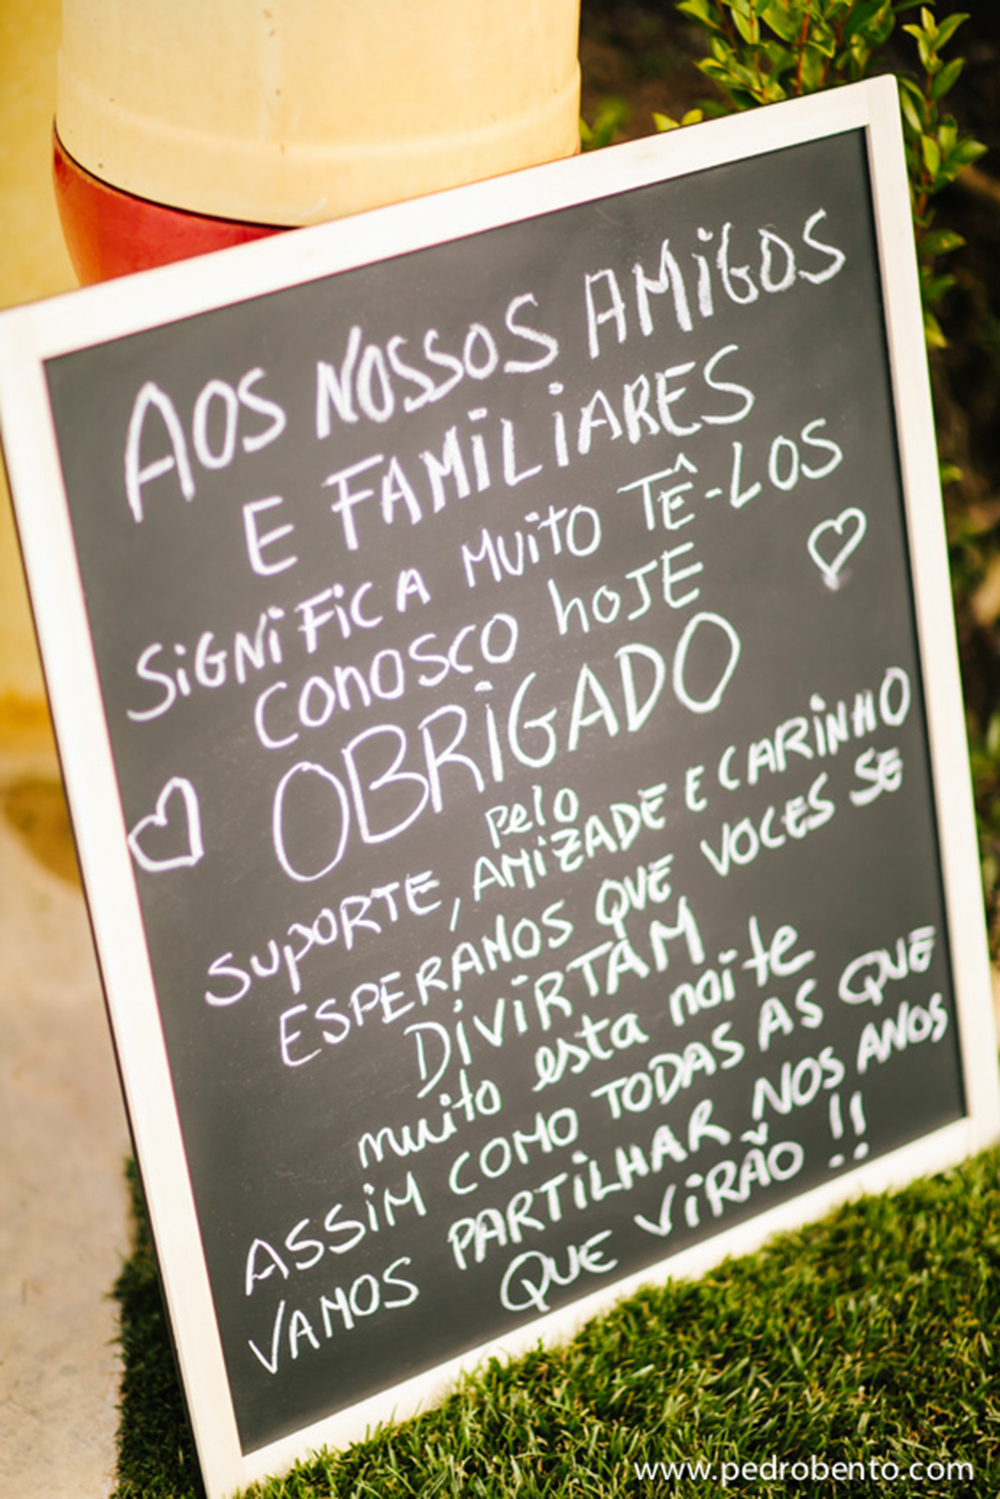 AOS NOSSOS AMiGOS
E FAMiLiARES
SiGNiFiCA MUiTO TÊ-LOS
CONOSCO hOJE
OBRiGADO
pelo
SUPORTE, AMiZADE E CARiNHO
ESPERAMOS QUE VOCES SE
DiViRTAM
muito esta noite
ASSiM COMO TODAS AS QUE
VAMOS PARTiLHAR NOS ANOS
QUE ViRÃO !!
www.pedrobento.com